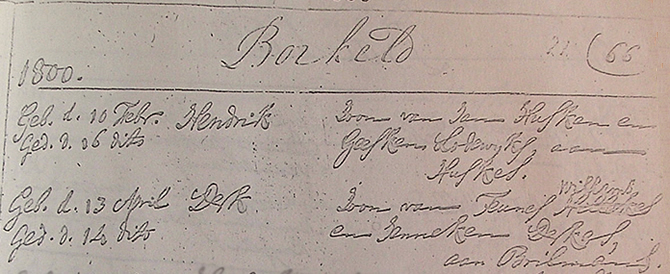 Borkeld 21. (66
1800.
Geb. d. 10 Febr. Hendrik Zoon van Jan Husken en
Ged. d. 16 dito Geesken Lodewyks, aan
Huskes.
Willems,
Geb. d. 13 April Derk. Zoon van Teunes
Ged. d. 14 dito en Janneken Derkes,
aan